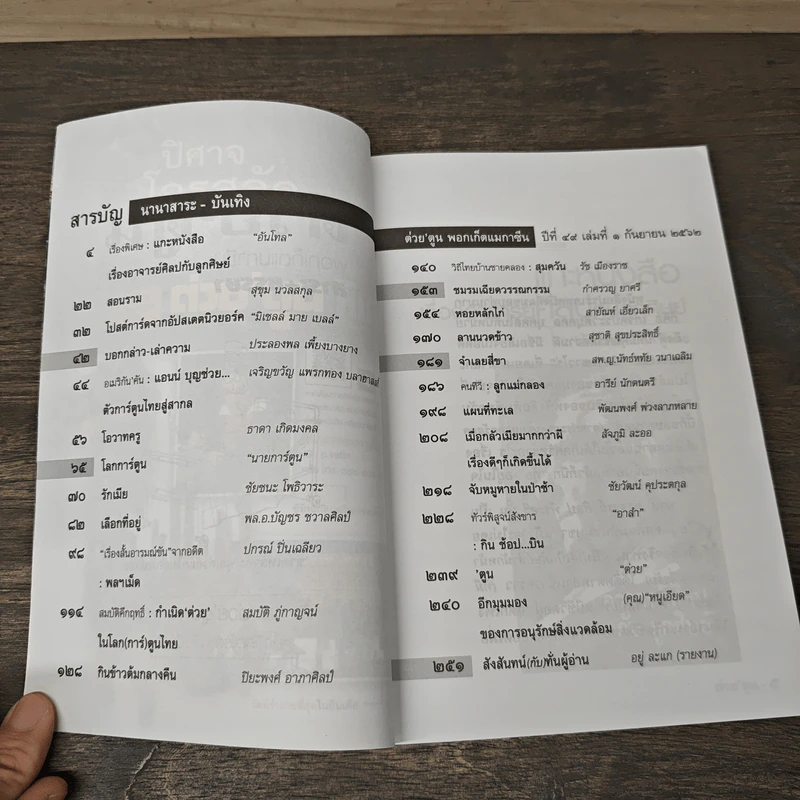 สารบัญ นานาสาระ - บันเทิง
๔ เรื่องพิเศษ : แกะหนังสือ "อันโทล"
เรื่องอาจารย์ศิลปกับลูกศิษย์
๒๒ สอนราม สุขุม นวลสกุล
๓๒ โปสต์การ์ดจากอัปสเตตนิวยอร์ค "มิเชลล์ มาย เบลล์"
๔๒ บอกกล่าว-เล่าความ ประลองพล เพี้ยงบางยาง
๔๔ อเมริกัน'คัน : แอนน์ บุญช่วย... เจริญขวัญ แพรกทอง บลาฮาลสมี
ตัวการ์ตูนไทยสู่สากล
๕๖ โอวาทครู ธาดา เกิดมงคล
๖๕ โลกการ์ตูน "นายการ์ตูน"
๗๐ รักเมีย ชัยชนะ โพธิวาระ
๘๒ เลือกที่อยู่ พล.อ.บัญชร ชวาลศิลป์
๙๘ "เรื่องสั้นอารมณ์ขัน"จากอดีต ปกรณ์ ปิ่นเฉลียว
: พลฯเม็ด
๑๑๔ สมบัติคึกฤทธิ์ : กำเนิด'ต่วย' สมบัติ ภู่กาญจน์
ในโลก(การ์)ตูนไทย
๑๒๘ กินข้าวต้มกลางคืน ปิยะพงศ์ อาภาศิลป์
ต่วย'ตูน พอกเก็ตแมกาซีน ปีที่ ๔๙ เล่มที่ ๑ กันยายน ๒๕๖๒
๑๔๐ วิถีไทยบ้านชายคลอง : สุมควัน รัช เมืองราช
๑๕๓ ชมรมเฉียดวรรณกรรม กำศรวญ ยาศรี
๑๕๔ หอยหลักไก่ สายัณห์ เอี่ยวเล็ก
๑๗๐ ลานนวดข้าว สุชาติ สุขประสิทธิ์
๑๘๑ จำเลยสี่ขา สพ.ญ.นัทธ์หทัย วนาเฉลิม
๑๘๖ คนทีวี : ลูกแม่กลอง อารีย์ นักดนตรี
๑๙๘ แผนที่ทะเล พัฒนพงศ์ พ่วงลาภหลาย
๒๐๘ เมื่อกลัวเมียมากกว่าผี สัจภูมิ ละออ
เรื่องดีๆก็เกิดขึ้นได้
๒๑๘ จับหมูหายในป่าช้า ชัยวัฒน์ คุประตกุล
๒๒๘ ทัวร์พิสูจน์สังขาร "อาสำ"
: กิน ช้อป...บิน
๒๓๙ 'ตูน "ต่วย"
๒๔๐ อีกมุมมอง (คุณ)"หนูเอียด"
ของการอนุรักษ์สิ่งแวดล้อม
๒๕๑ สังสันทน์(กับ)ท่านผู้อ่าน อยู่ ละแก (รายงาน)